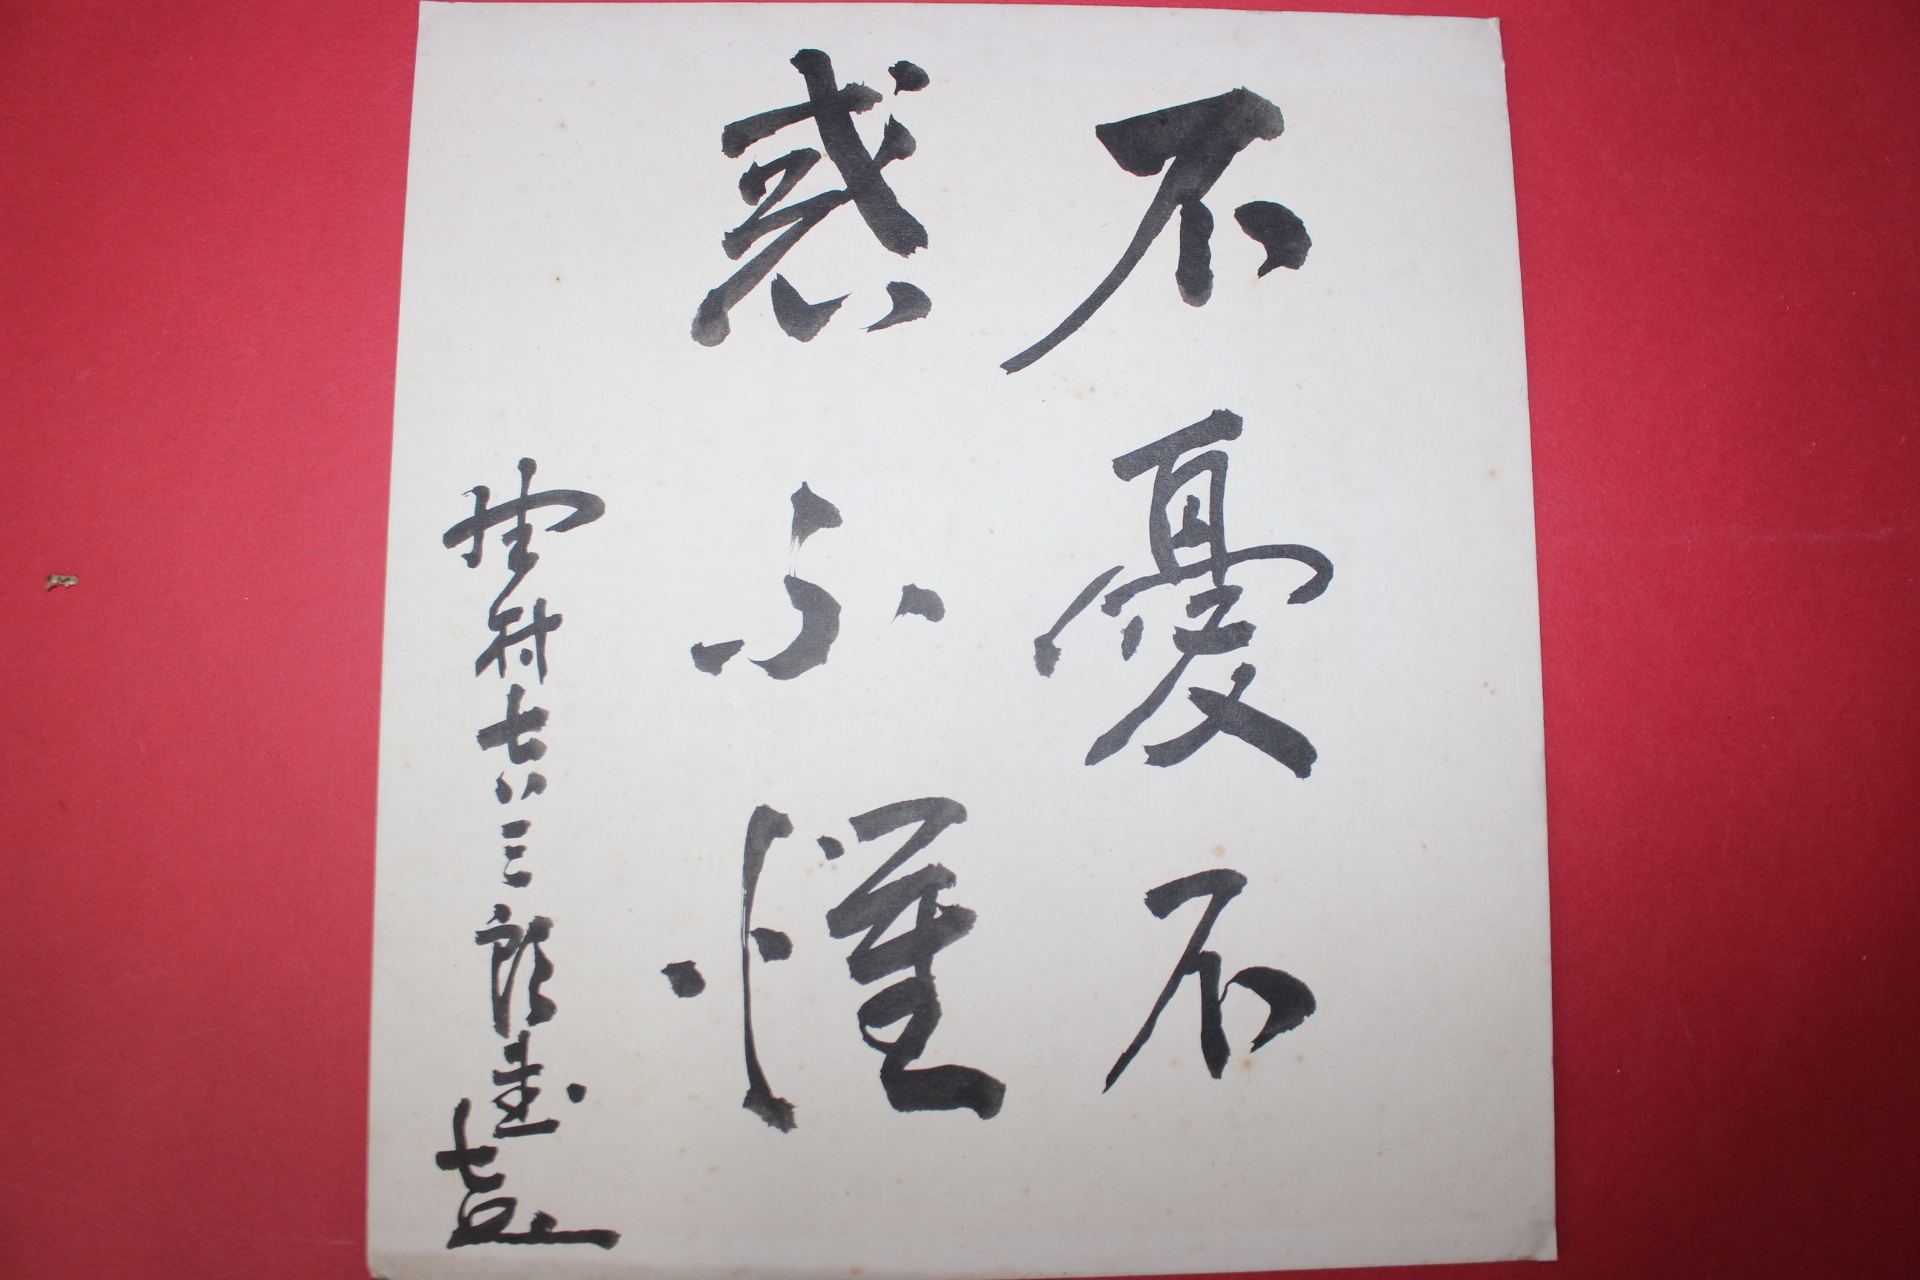 不憂不
惑不懼
村七八三郎書